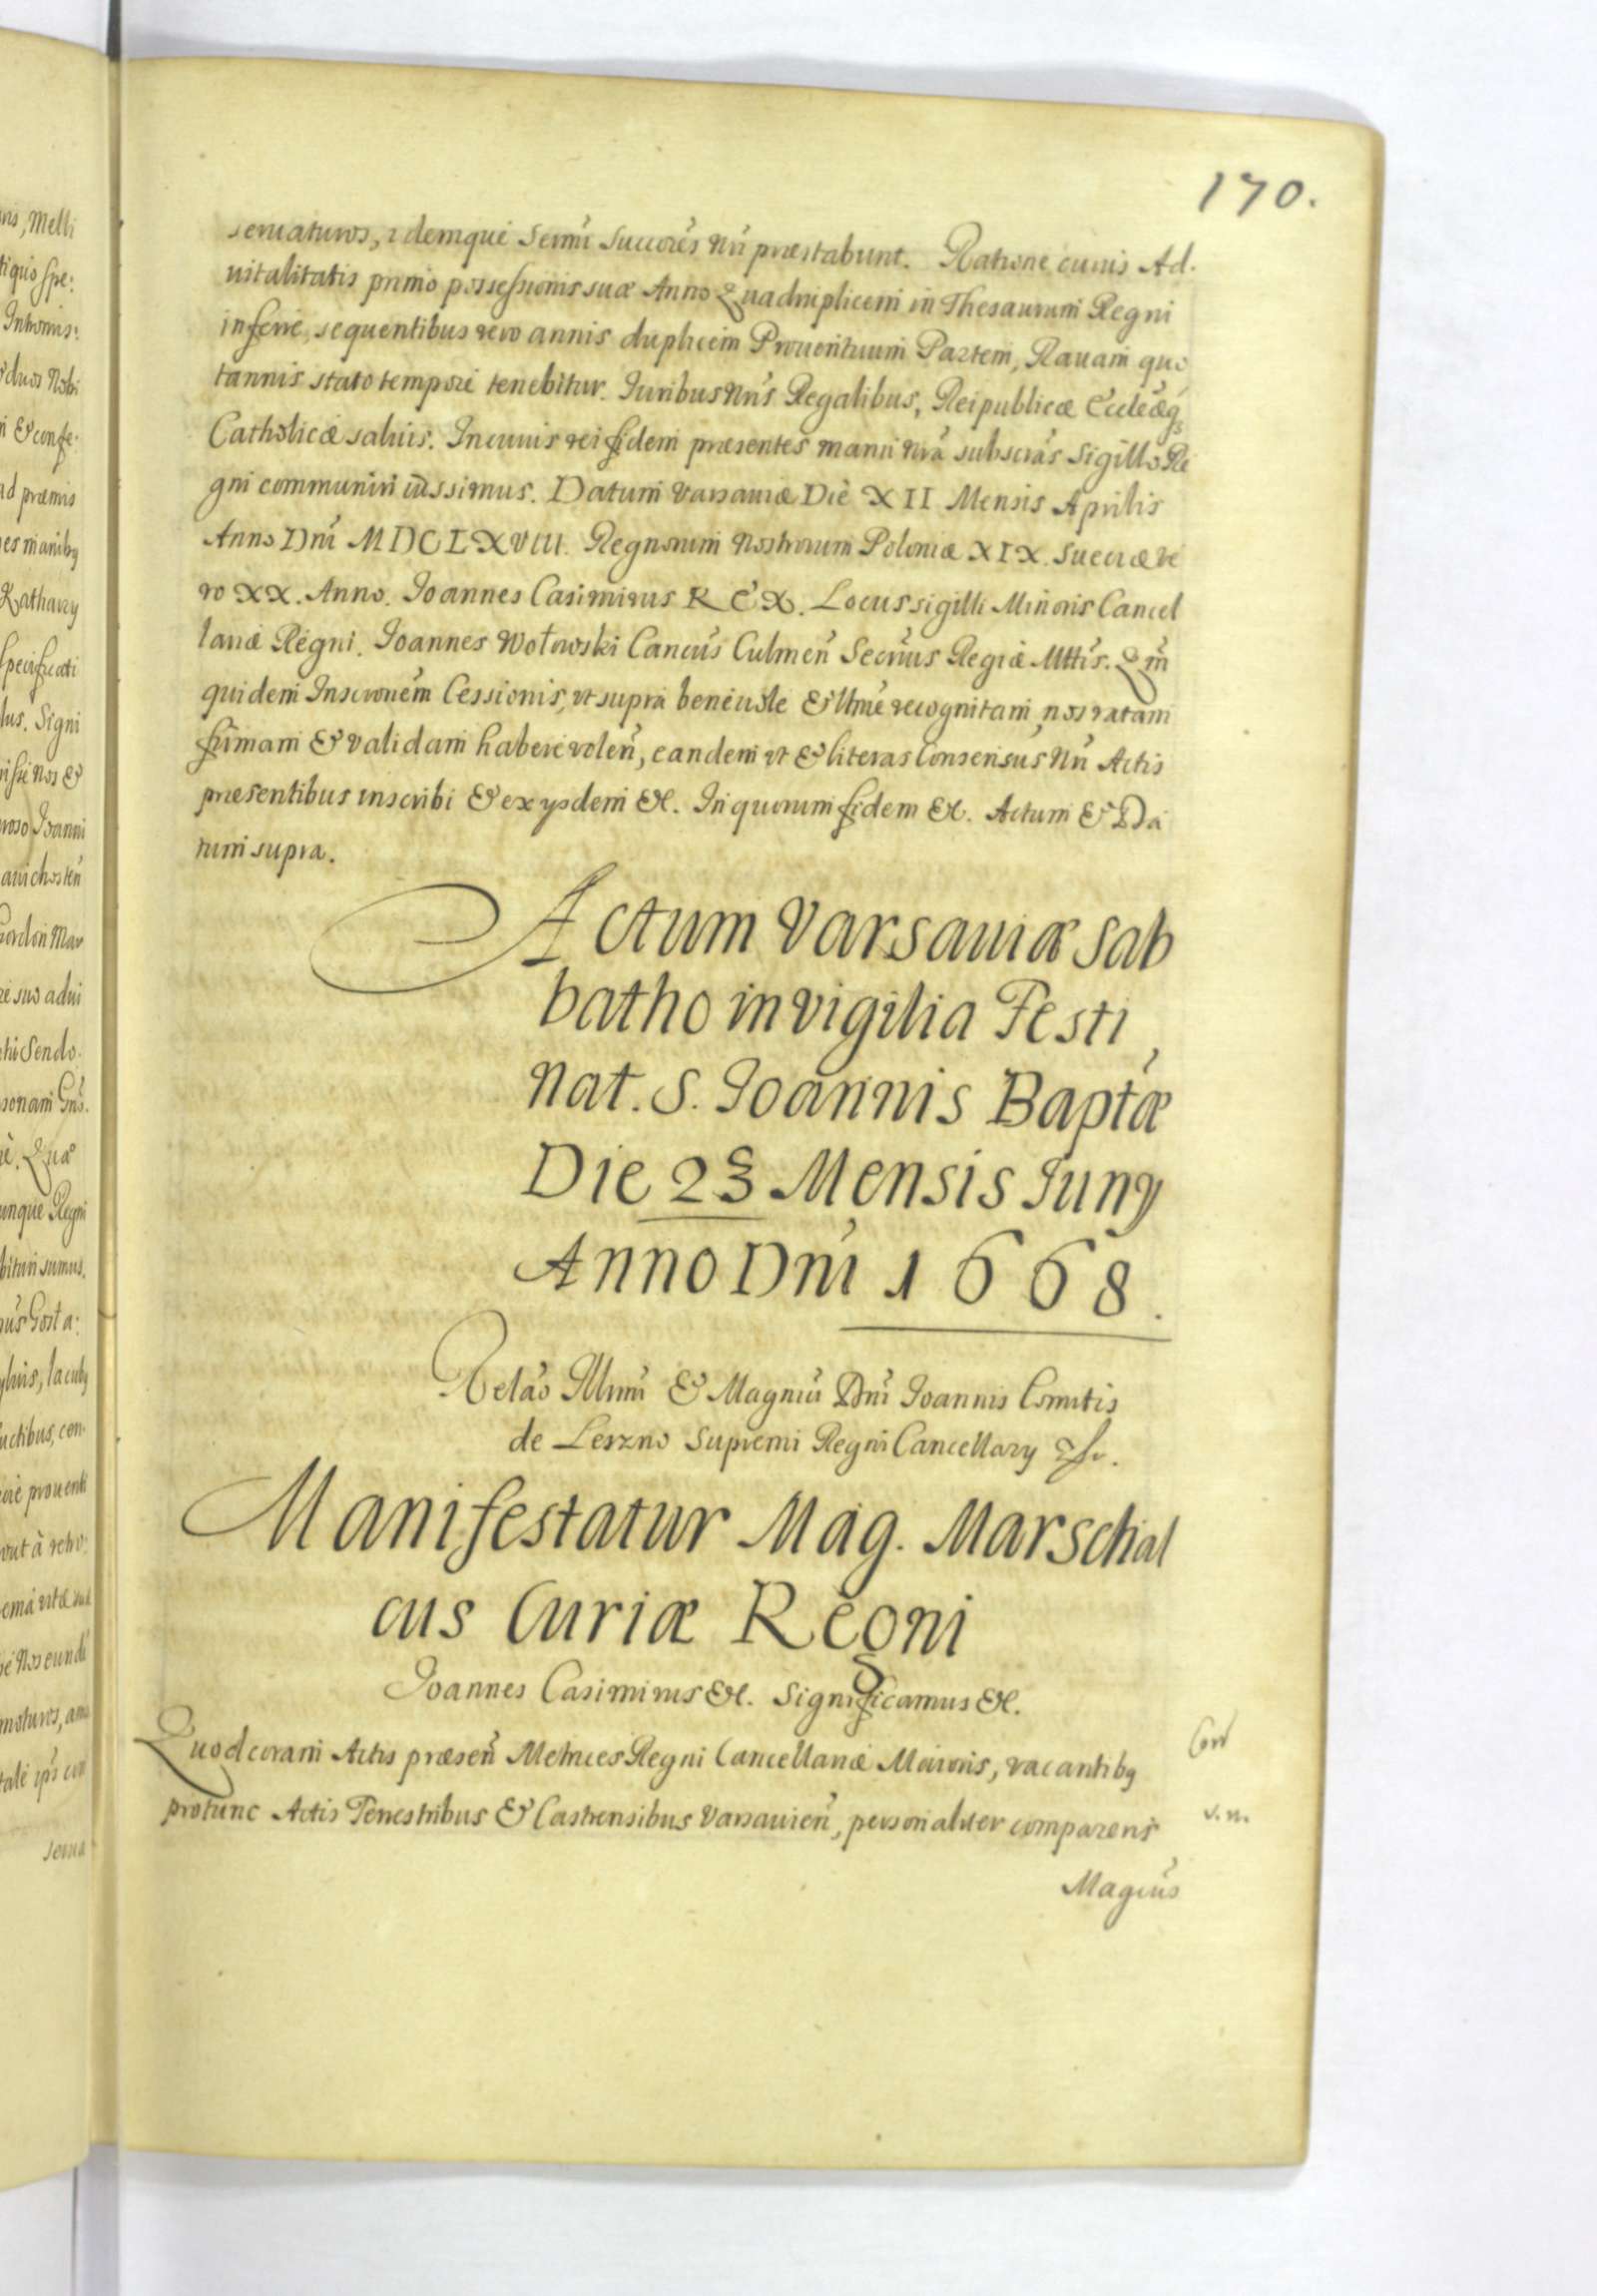 170.
seruaturos, idemque Sermi Succores Nri præstabunt. Ratione cuius Ad-
uitalitatis primo possessionis suæ Anno Quadruplicem in Thesaurum Regni
inferre, sequentibus vero annis duplicem Prouentuum Partem, Rauam quo
tannis stato tempore tenebitur. Iuribus Nris Regalibus, Reipublicæ Eccleæq
Catholicæ saluis. In cuius rei fidem præsentes manu nra subscras Sigillo Re
gni communiri iussimus. Datum Varsauiæ Die XII Mensis Aprilis
Anno Dni MDCLXVIII. Regnorum Nostrorum Poloniæ XIX. Sueciæ ve
ro XX. Anno. Joannes Casimirus REX. Locus sigilli Minoris Cancel
lariæ Regni. Joannes Wołowski Cancus Culmen Secrius Regiæ Mttis. Qm
quidem Inscronem Cessionis, vt supra beneuole & lltme recognitam, nos ratam
firmam & validam habere volen, eandem vt & literas Consensus Nri Actis
præsentibus inscribi & ex ijsdem &c. In quorum fidem &c. Actum & Da
tum supra.
Actum Varsauiæ Sab
batho in vigilia Festi
nat. S. Joannis Baptæ
Die 23 Mensis Juny
Anno Dni 1668.
Relao Illmi & Magnci Dni Joannis Comitis
de Leszno Supremi Regni Cancellary &c.
Manifestatur Mag. Marschal
cus Curiæ Regni
Joannes Casimirus &c. Significamus &c.
Quod coram Actis præsen Metrices Regni Cancellariæ Maioris, vacantibq
protunc Actis Terrestribus & Castrensibus Varsauien, personaliter comparens
Magcus